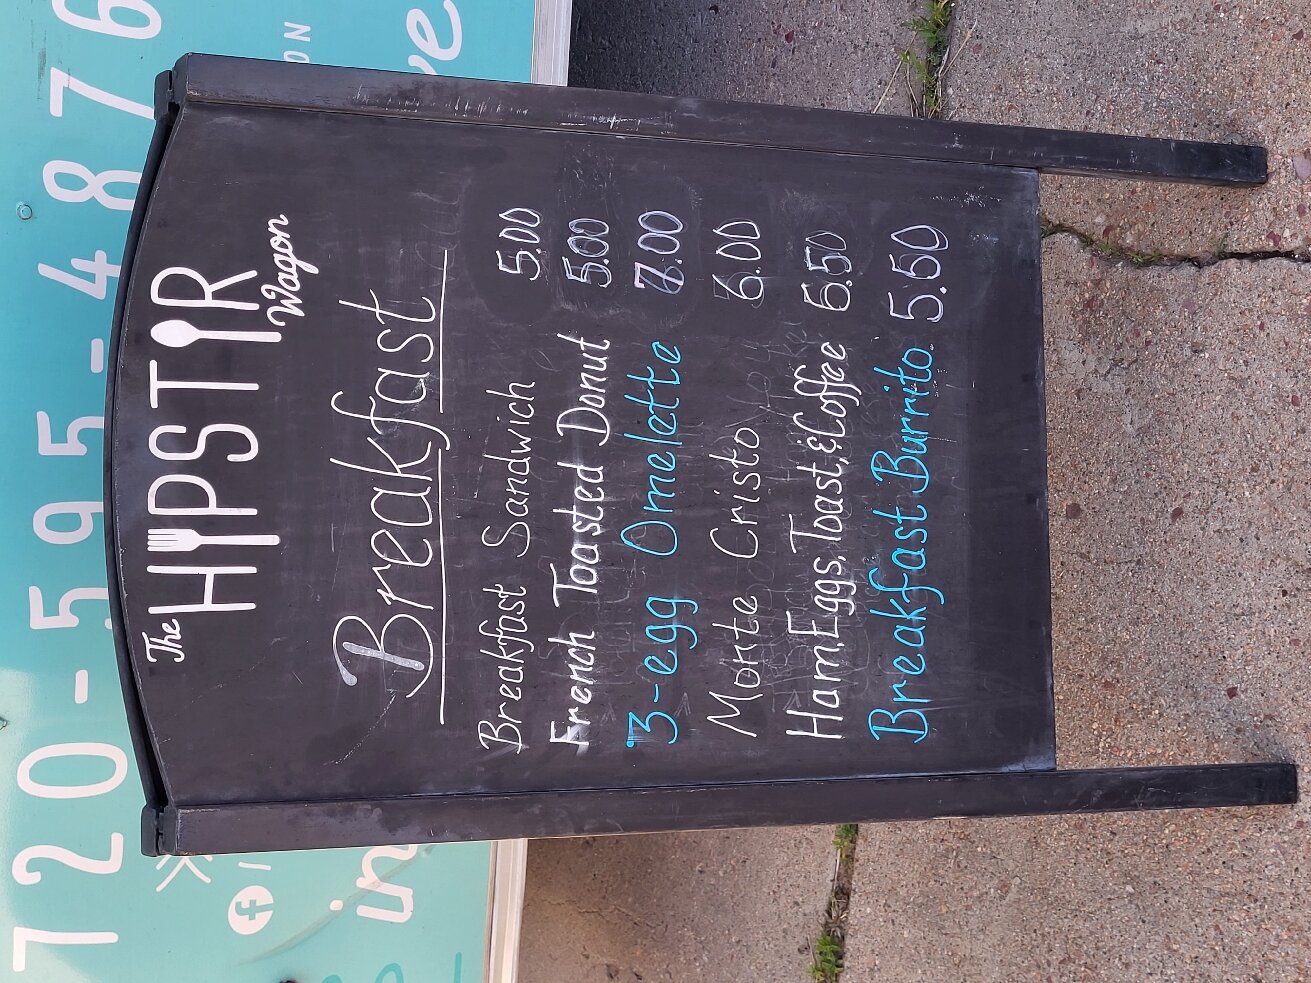 720-595-4876
The
HIPSTIR
Wagon
Breakfast
Breakfast Sandwich 5.00
French Toasted Donut 5.00
3-egg Omelette 7.00
Monte Cristo 6.00
Ham, Eggs, Toast, & Coffee 6.50
Breakfast Burrito 5.50